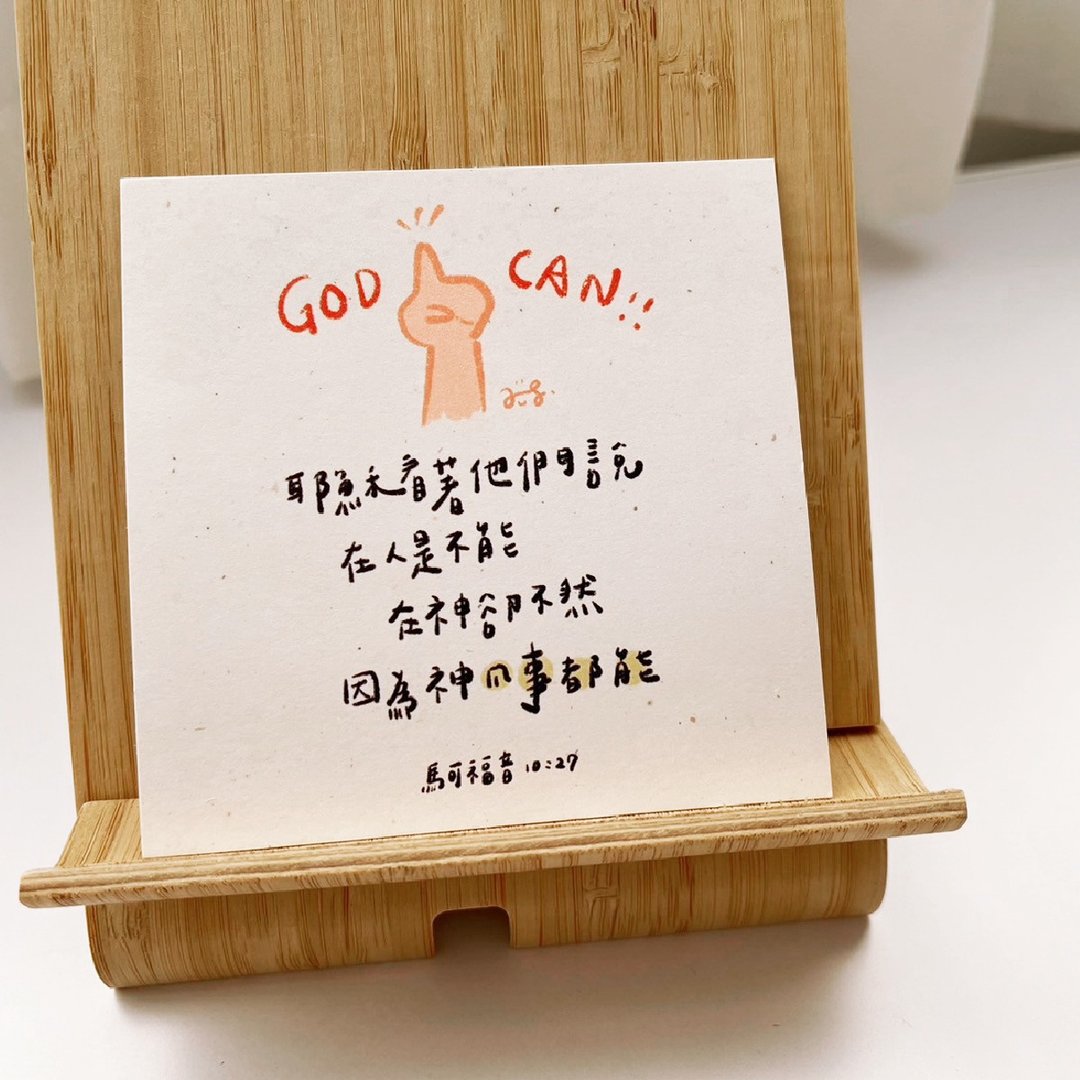 GOD CAN!!
耶穌看著他們說
在人是不能
在神卻不然
因為神凡事都能
馬可福音 10:27